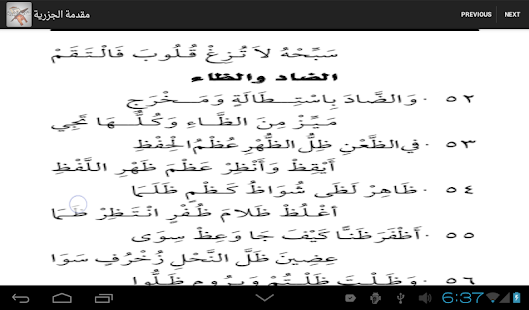 مقدمة الجزرية
PREVIOUS NEXT
سَبِّحْهُ لاَ تُزِغْ قُلُوبَ فَالْتَقَمْ
الضاد والظاء
٥٢ - وَالضَّادَ بِاسْتِطَالَةٍ وَمَخْرَجِ
مَيِّزْ مِنَ الظَّاءِ وَكُلُّهَا تَجِي
٥٣ - فِي الظَّعْنِ ظِلُّ الظُّهْرِ عُظْمُ الْحِفْظِ
أَيْقِظْ وَأَنْظِرْ عَظْمَ ظَهْرِ اللَّفْظِ
٥٤ - ظَاهِرْ لَظَى شُوَاظُ كَظْمٍ ظَلَمَا
أُغْلُظْ ظَلاَمَ ظُفْرٍ انْتَظِرْ ظَمَا
٥٥ - أَظْفَرَ ظَنًّا كَيْفَ جَا وَعِظْ سِوَى
عِضِينَ ظَلَّ النَّحْلِ زُخْرُفٍ سَوَا
٥٦ - وَظَلْتَ ظَلْتُمْ وَبِرُومٍ ظَلُّوا
6:37